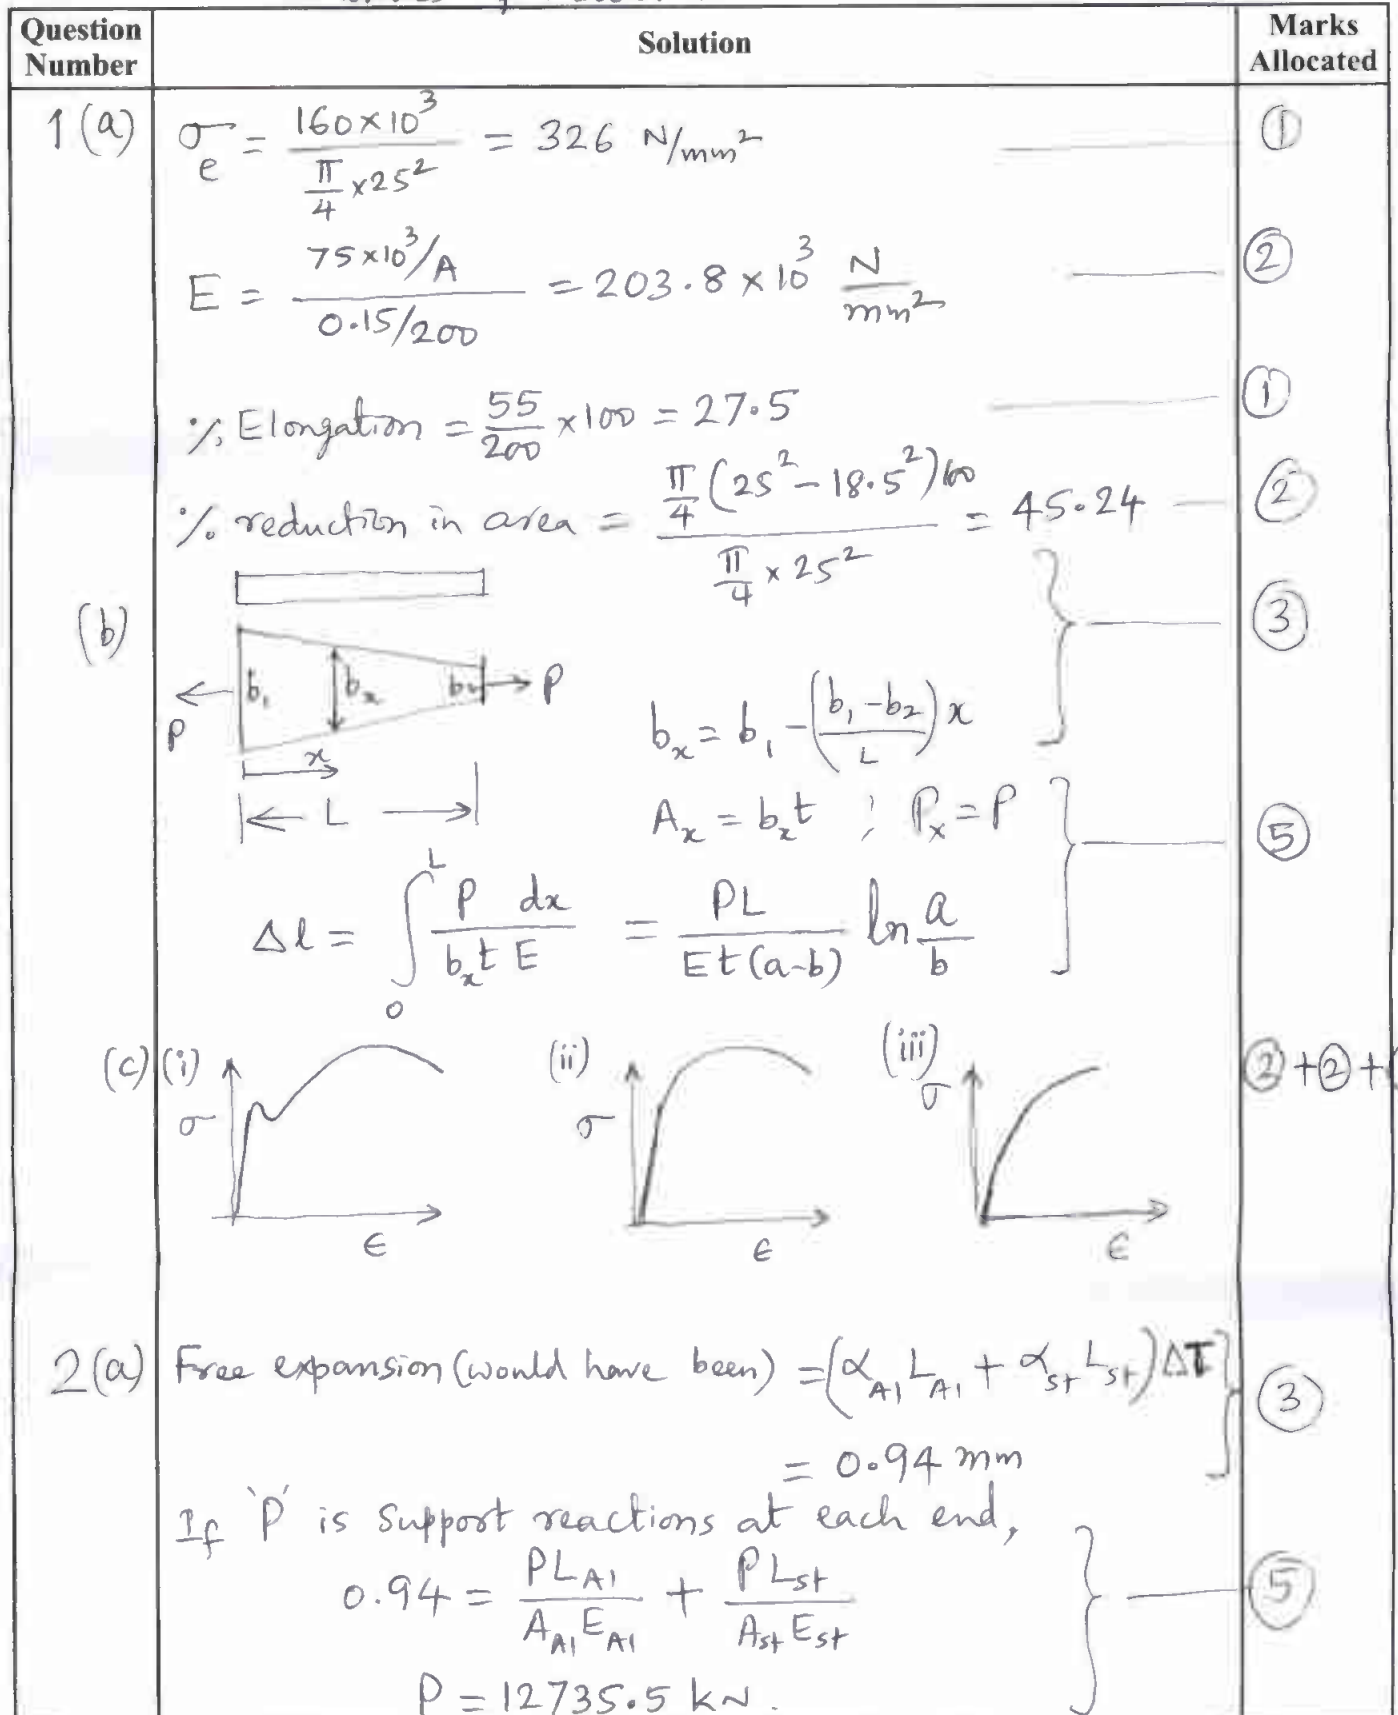 Question Number
Solution
Marks Allocated
1 (a)
σe = 160×10³ / (π/4 ×25²) = 326 N/mm²
①
E = (75×10³/A) / (0.15/200) = 203.8 × 10³ N/mm²
②
% Elongation = 55/200 ×100 = 27.5
①
% reduction in area = π/4 (25² − 18.5²)100 / (π/4 × 25²) = 45.24
②
(b)
③
P
b₁
bx
b₂
P
x
L
bx = b₁ − ((b₁ − b₂)/L) x
Ax = bx t ; Px = P
⑤
Δl = ∫₀ᴸ P dx / (bx t E) = PL / (E t (a-b)) ln a/b
(c)
(i)
σ
ϵ
(ii)
σ
ϵ
(iii)
σ
ϵ
②+②+
2(a)
Free expansion (would have been) = (αAl LAl + αst Lst) ΔT
③
= 0.94 mm
If 'P' is support reactions at each end,
0.94 = PLAl / (AAl EAl) + PLst / (Ast Est)
⑤
P = 12735.5 kN.